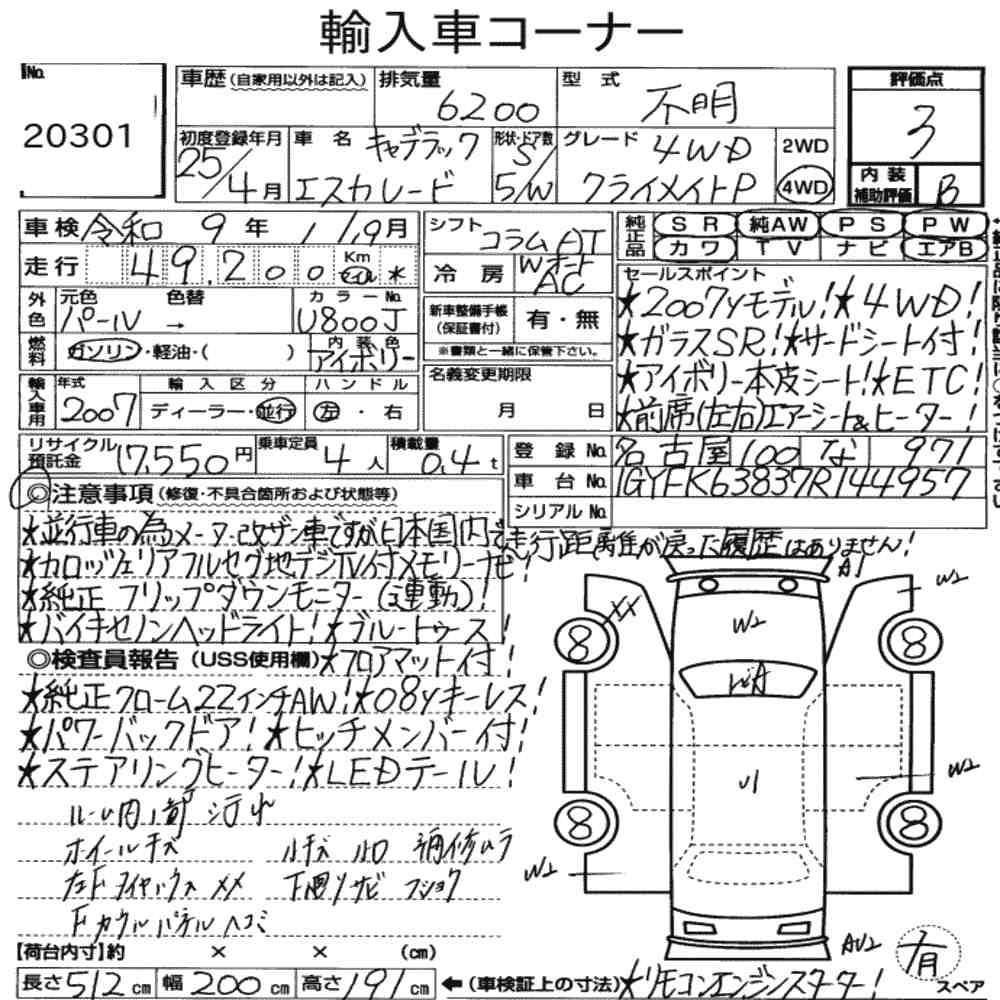 輸入車コーナー
No. 20301
車歴(自家用以外は記入) 排気量 6200 型式 不明
評価点 3
初度登録年月 25/4月 車名 キャデラック エスカレード 形状・ドア数 S/5/W グレード 4WD クライメイトP 2WD 4WD
内装補助評価 B
車検 令和 9年 11/19月
シフト コラムAT
純正品 SR 純AW PS PW
カワ TV ナビ エアB
走行 49,200 Km マイル *
冷房 WオートAC
外色 元色 パール 色替 → カラーNo. U800J
新車整備手帳(保証書付) 有・無
※書類と一緒に保管下さい。
燃料 ガソリン・軽油・( ) 内装色 アイボリー
セールスポイント
★2007yモデル!★4WD!
★ガラスSR!★サードシート付!
★アイボリー本皮シート!★ETC!
★前席(左右)エアーシート&ヒーター!
輸入車用 年式 2007 輸入区分 ディーラー・並行 ハンドル 左・右
名義変更期限 月 日
リサイクル預託金 17,550円 乗車定員 4人 積載量 0.4t
登録No. 名古屋 100 な 971
車台No. 1GYFK63837R144957
シリアルNo.
◎注意事項(修復・不具合箇所および状態等)
★並行車の為メーター改ザン車ですが日本国内で走行距離が戻った履歴はありません!
★カロッツェリアフルセグ地デジTV付メモリーナビ!
★純正フリップダウンモニター(連動)!
★バイキセノンヘッドライト!★ブルートゥース!
◎検査員報告(USS使用欄)★フロアマット付!
★純正クローム22インチAW!★08yキーレス!
★パワーバックドア!★ヒッチメンバー付!
★ステアリングヒーター!★LEDテール!
ホイールキズ
下廻りサビ フショク
A1
W2
8
XX
8
W2
W2
8
8
W2
AU2
【荷台内寸】約 × × (cm)
長さ512cm 幅200cm 高さ191cm ←(車検証上の寸法)★リモコンエンジンスターター!
有
スペア